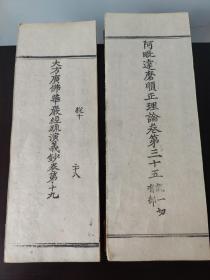 阿毗達磨順正理論卷第三十五
說一切
有部
大方廣佛華嚴經疏演義鈔卷第十九